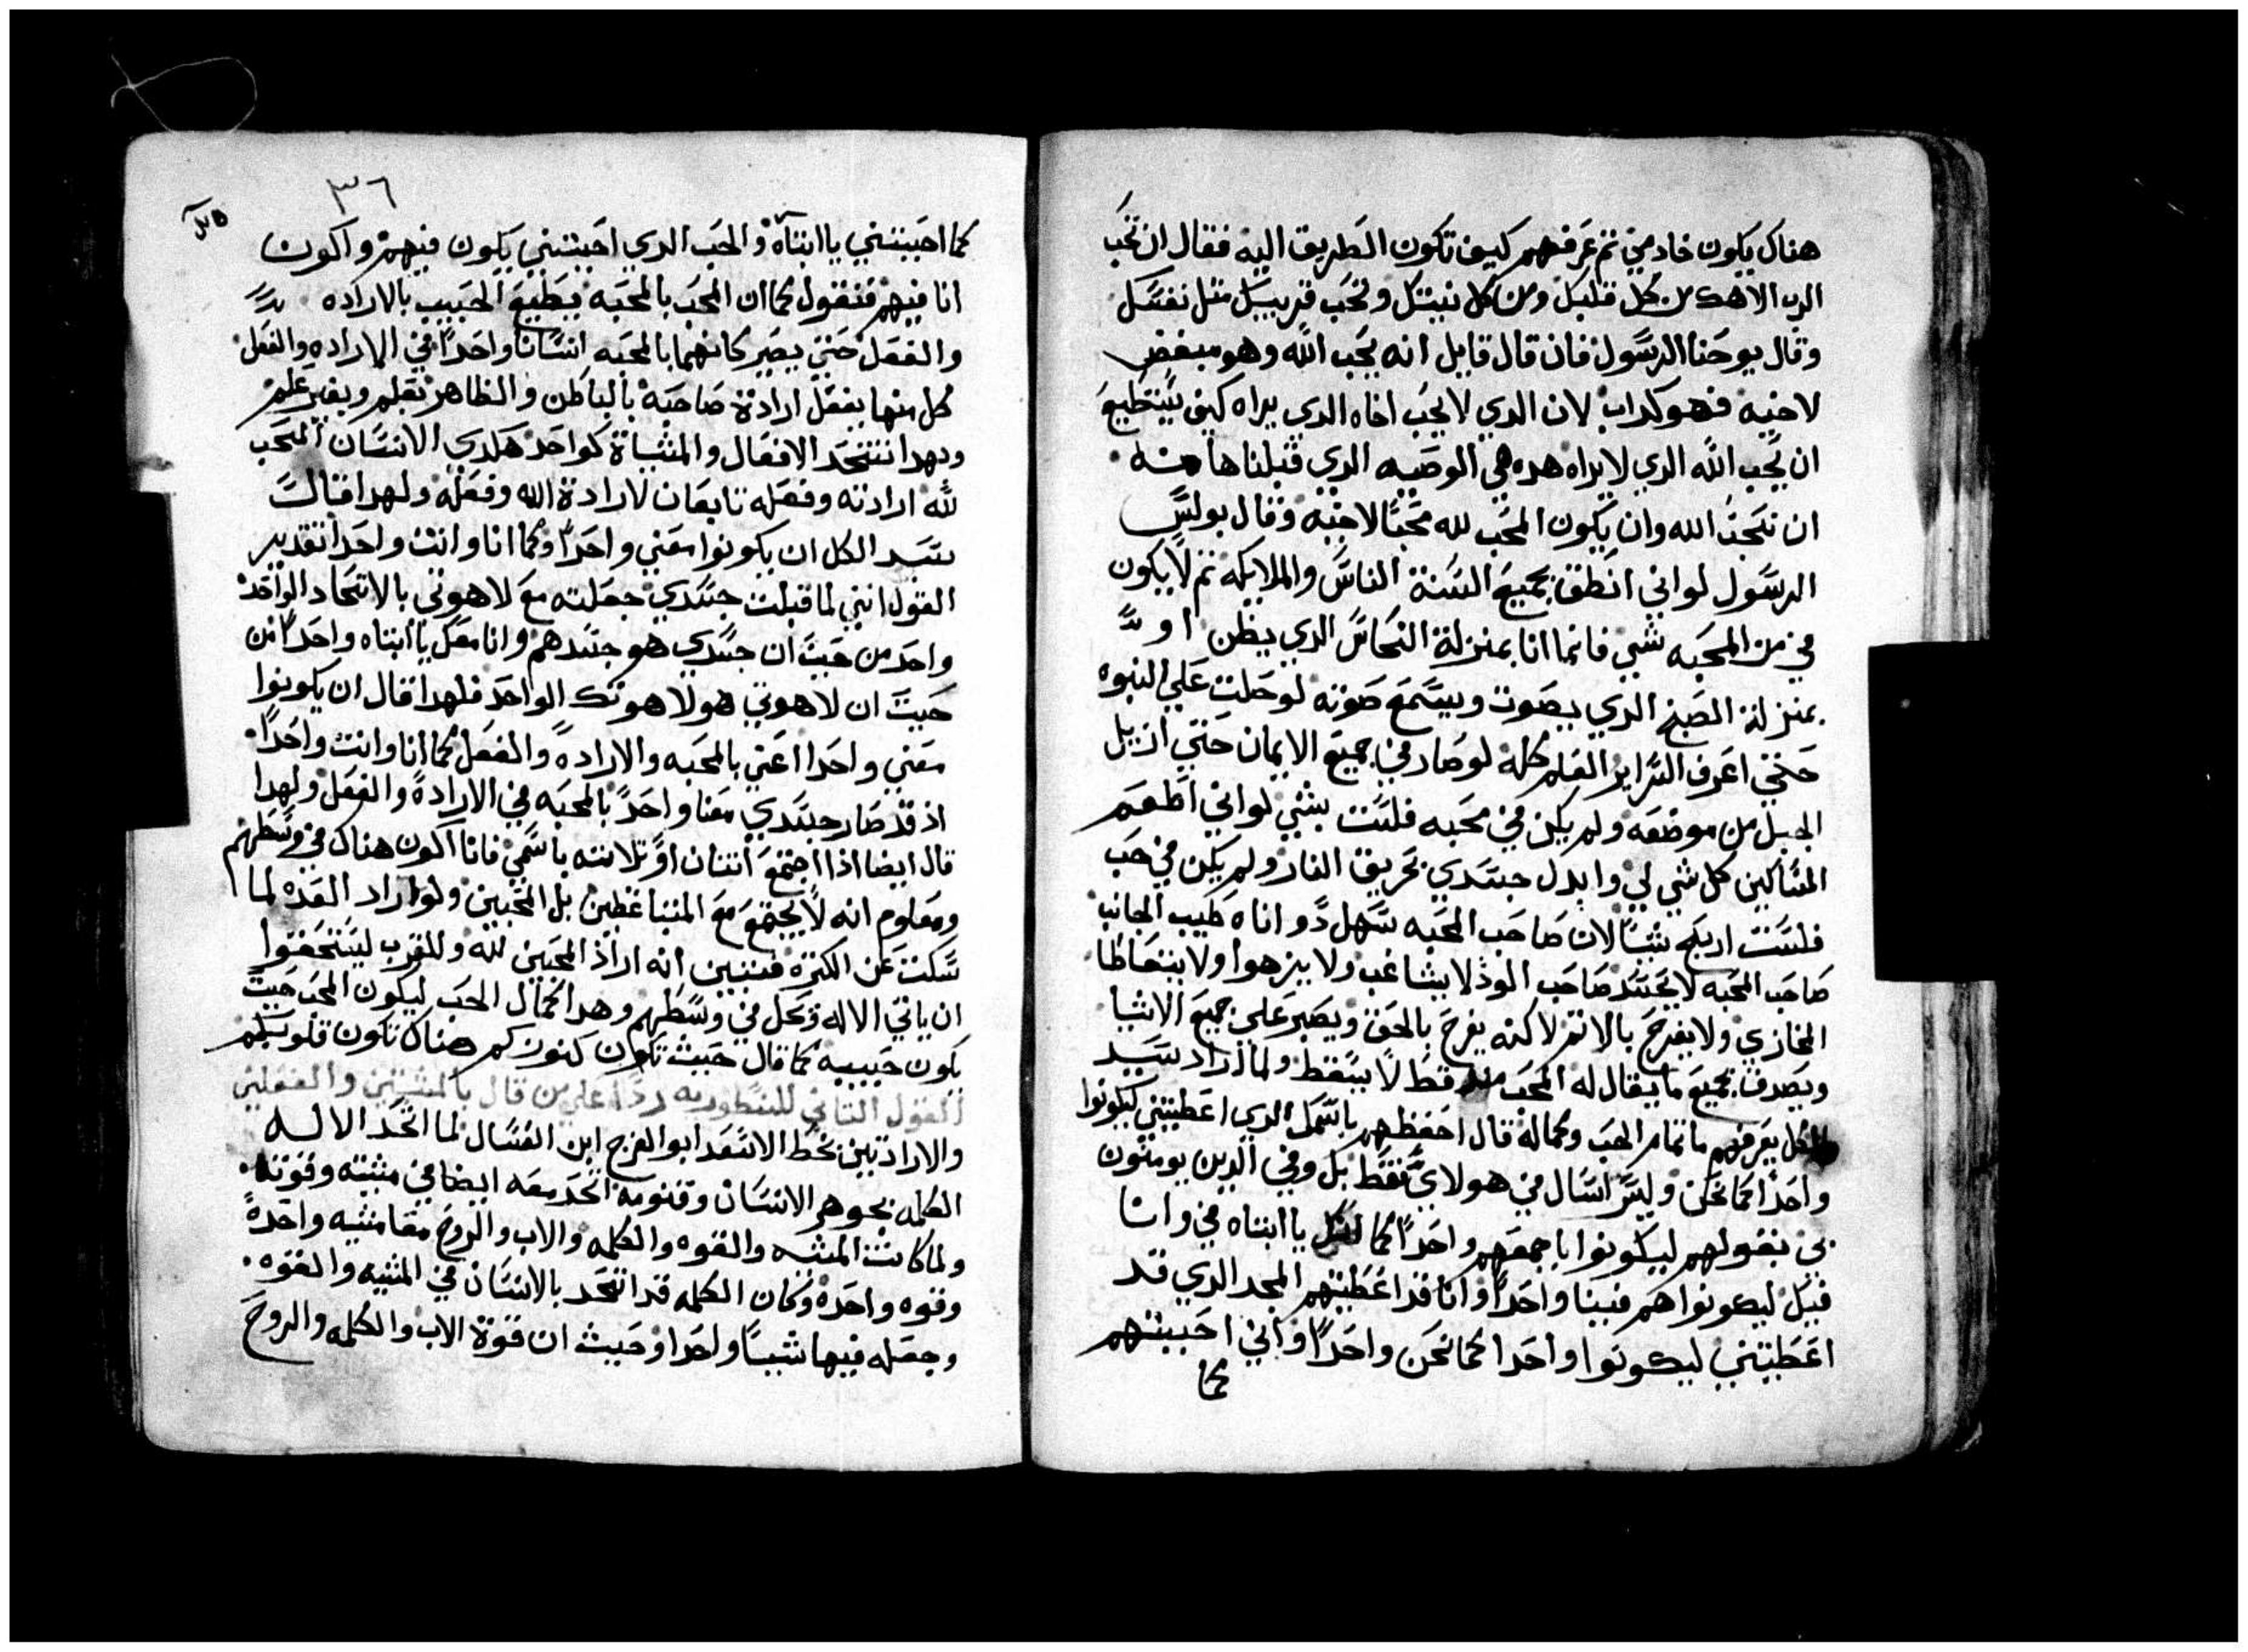 هناك يكون خادمي ثم عرفهم كيف تكون الطريق اليه فقال ان تحب
الرب الاهك من كل قلبك ومن كل نيتك وتحب قريبك مثل نفسك
وقال يوحنا الرسول فان قال قايل انه يحب الله وهو مبغض
لاخيه فهو كداب لان الدي لا يحب اخاه الدي يراه كيف يستطيع
ان يحب الله الدي لا يراه هده هي الوصيه الدي قبلناها منه
ان نحب الله وان يكون المحب لله محبا لاخيه وقال بولس
الرسول لو اني انطق بجميع السنة الناس والملايكه ثم لا يكون
في من المحبه شي فانما انا بمنزلة النحاس الدي يطن او
بمنزلة الصنج الدي يصوت ويسمع صوته لو حلت علي النبوه
حتي اعرف السراير العلم كله لو صار في جميع الايمان حتي ازيل
الجبل من موضعه ولم يكن في محبه فلست بشي لو اني اطعم
المساكين كل شي لي وابدل جسدي لحريق النار ولم يكن في حب
فلست اربح شيا لان صاحب المحبه سهل دو اناه طيب الجانب
صاحب المحبه لا يحسد صاحب الود لا يشاغب ولا يزهوا ولا يتعاطا
المخازي ولا يفرح بالاثم لاكنه يفرح بالحق ويصبر علي جميع الاشيا
ويصدق بجميع ما يقال له المحب قط لا يسقط ولما اراد سيد
الكل يعرفهم ما تمام الحب وكماله قال احفظهم باسمك الدي اعطيتني ليكونوا
واحدا كما نحن وليس اسال في هولاي فقط بل وفي الدين يومنون
بي بقولهم ليكونوا باجمعهم واحدا كما انك يا ابتاه في وانا
فيك ليكونوا هم فينا واحدا وانا قد اعطيتهم المجد الدي قد
اعطيتني ليكونوا واحدا كما نحن واحدا واني احببتهم
كما
٣٦
كما احببتني يا ابتاه والحب الدي احببتني يكون فيهم واكون
انا فيهم فنقول كما ان المحب بالمحبه يطيع الحبيب بالاراده
والفعل حتي يصير كانهما بالمحبه انسانا واحدا في الاراده والفعل
كل منهما يفعل ارادة صاحبه بالباطن والظاهر بعلم وبغير علم
وبهدا تتحد الافعال والمشياة كواحد هكدي الانسان المحب
لله ارادته وفعله تابعان لارادة الله وفعله ولهدا قال
سيد الكل ان يكونوا معي واحدا وكما انا وانت واحدا تقدير
القول انني لما قبلت جسدي جعلته مع لاهوتي بالاتحاد الواحد
واحد من حيث ان جسدي هو جسدهم وانا معك يا ابتاه واحدا من
حيث ان لاهوتي هو لاهوتك الواحد فلهدا قال ان يكونوا
معي واحدا اعني بالمحبه والاراده والفعل كما انا وانت واحدا
اذ قد صار جسدي معنا واحد بالمحبه في الارادة والفعل ولهدا
قال ايضا اذا اجتمع اثنان او ثلاثه باسمي فانا اكون هناك في وسطهم
ومعلوم انه لا يجتمع مع المتباغضين بل المحبين ولو اراد العده لما
سكت عن الكثره فتبين انه اراد المحبين لله وللقرب ليستحقوا
ان ياتي الاله ويحل في وسطهم وهدا كمال الحب ليكون المحب حيث
يكون حبيبه كما قال حيث تكون كنوزكم هناك تكون قلوبكم
القول الثاني للنسطوريه ردا علي من قال بالمشيتين والفعلين
والارادتين بخط الاسعد ابو الفرج ابن العسال لما اتحد الاله
الكلمه بجوهر الانسان وقنومه اتحد معه ايضا في مشيته وقوته
ولما كانت المشيه والقوه والكلمه والاب والروح معا مشيه واحدة
وقوه واحده وكان الكلمه قد اتحد بالانسان في المشيه والقوه
وجعله فيها شيا واحدا وحيث ان قوة الاب والكلمه والروح